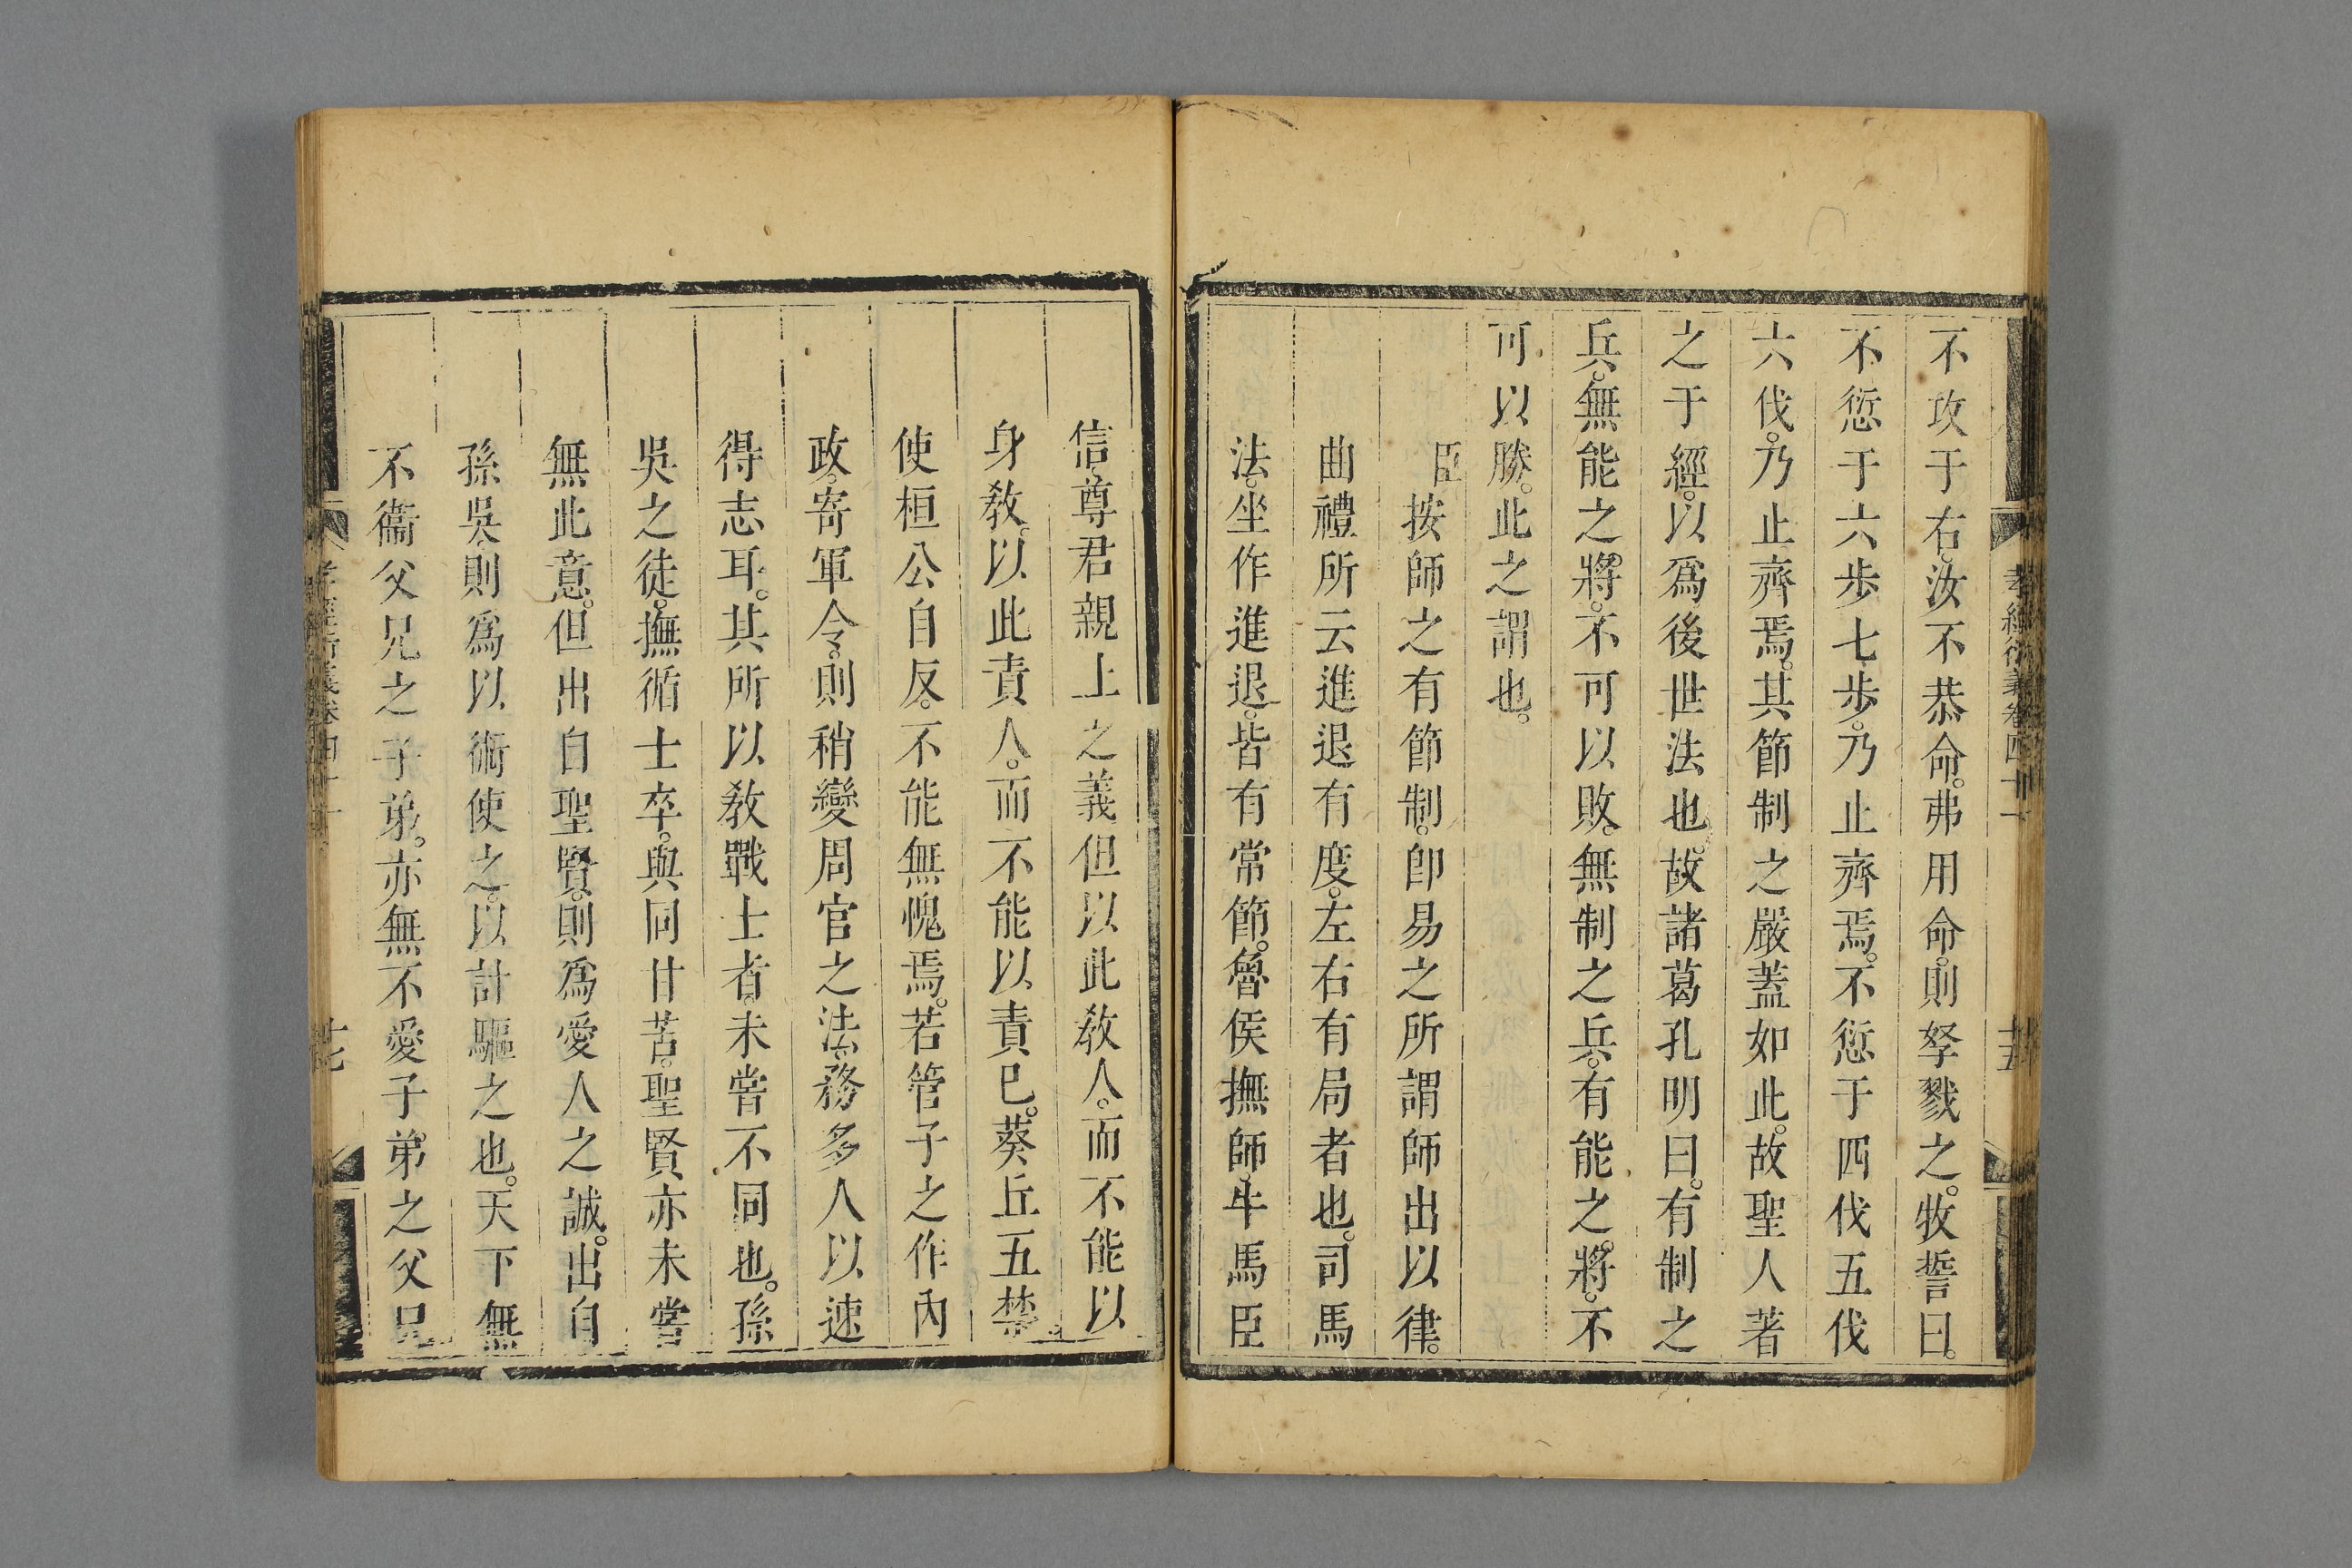 孝經衍義卷四十一
十五
不攻于右。汝不恭命。弗用命。則孥戮之。牧誓曰。
不愆于六步七步。乃止齊焉。不愆于四伐五伐
六伐。乃止齊焉。其節制之嚴蓋如此。故聖人著
之于經。以爲後世法也。故諸葛孔明曰。有制之
兵。無能之將。不可以敗。無制之兵。有能之將。不
可以勝。此之謂也。
臣按師之有節制。卽易之所謂師出以律。
曲禮所云進退有度。左右有局者也。司馬
法。坐作進退。皆有常節。魯侯撫師。牛馬臣
信。尊君親上之義但以此敎人。而不能以
身敎。以此責人。而不能以責已。葵丘五禁。
使桓公自反。不能無愧焉。若管子之作內
政。寄軍令。則稍變周官之法。務多人以速
得志耳。其所以敎戰士者。未嘗不同也。孫
吳之徒。撫循士卒。與同甘苦。聖賢亦未嘗
無此意。但出自聖賢。則爲愛人之誠。出自
孫吳。則爲以術使之。以計驅之也。天下無
不衞父兄之子弟。亦無不愛子弟之父兄
孝經衍義卷四十一